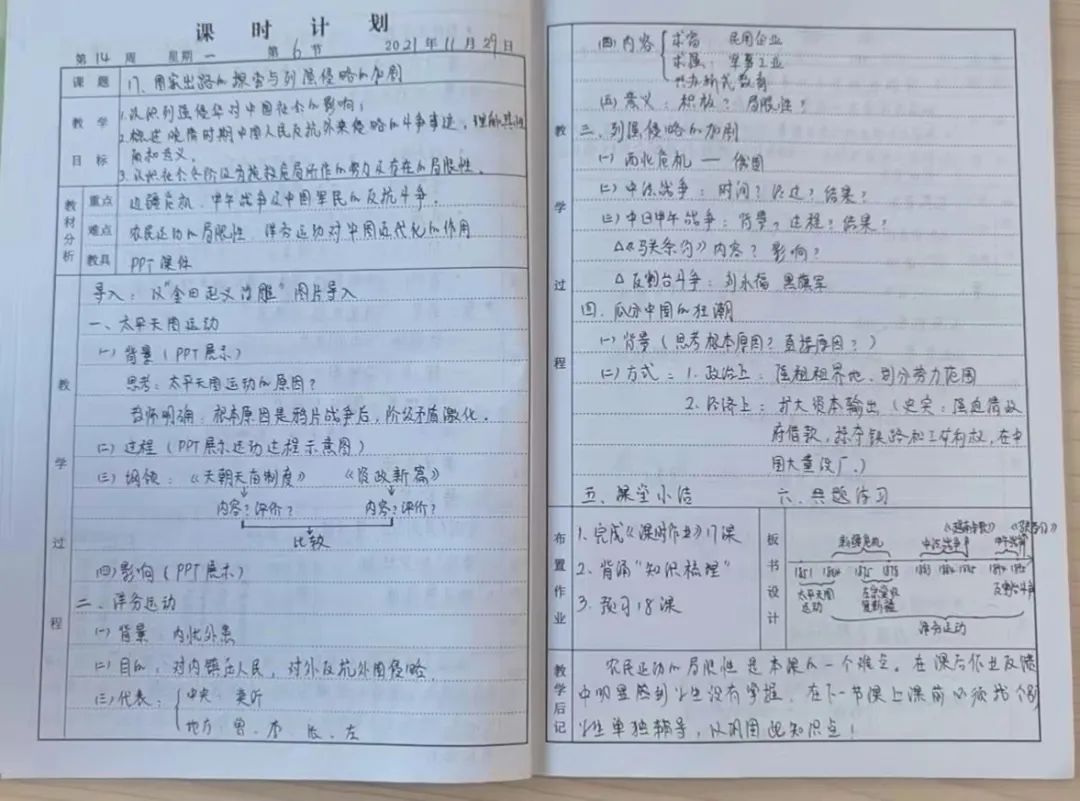 课时计划
第14周 星期一 第6节 2021年11月29日
课题 17、国家出路的探索与列强侵略的加剧
教学目标
1.认识列强侵华对中国社会的影响；
2.概述晚清时期中国人民反抗外来侵略的斗争事迹，理解其性
质和意义。
3.认识社会各阶级为挽救危局所作的努力及存在的局限性。
教材分析
重点 边疆危机、甲午战争及中国军民的反抗斗争。
难点 农民运动的局限性、洋务运动对中国近代化的作用
教具 PPT课件
教学过程
导入：以"金田起义浮雕"图片导入
一、太平天国运动
(一)背景(PPT展示)
思考：太平天国运动的原因？
老师明确：根本原因是鸦片战争后，阶级矛盾激化。
(二)过程(PPT展示运动过程示意图)
(三)纲领：《天朝田亩制度》 《资政新篇》
内容？评价？ 内容？评价？
比较
(四)影响(PPT展示)
二、洋务运动
(一)背景 内忧外患
(二)目的：对内镇压人民，对外反抗外国侵略
(三)代表： 中央：奕䜣
地方：曾、李、张、左
(四)内容 求富 民用企业
求强：军事工业
兴办新式教育
(五)意义：积极？局限性？
教学过程
三、列强侵略的加剧
(一)西北危机 — 俄国
(二)中法战争：时间？经过？结果？
(三)中日甲午战争：背景？过程？结果？
△《马关条约》内容？影响？
△反割台斗争：刘永福 黑旗军
四、瓜分中国的狂潮
(一)背景(思考根本原因？直接原因？)
(二)方式：1.政治上：强租租界地、划分势力范围
2.经济上：扩大资本输出(史实：强迫清政
府借款，掠夺铁路和工矿利权，在中
国大量设厂。)
五、课堂小结 六、典题练习
布置作业
1.完成《课时作业》17课
2、背诵"知识梳理"
3、预习18课
板书设计
新疆危机 中法战争 甲午战争
1851 1864 1875 1878 1883 1885 1894 1895
太平天国
运动
左宗棠收
复新疆
反割台斗争
洋务运动
教学后记
农民运动的局限性是本课的一个难点。在课后作业反馈
中明显感到学生没有掌握，在下一节课上课前必须找个别
学生单独辅导，以巩固此知识点！